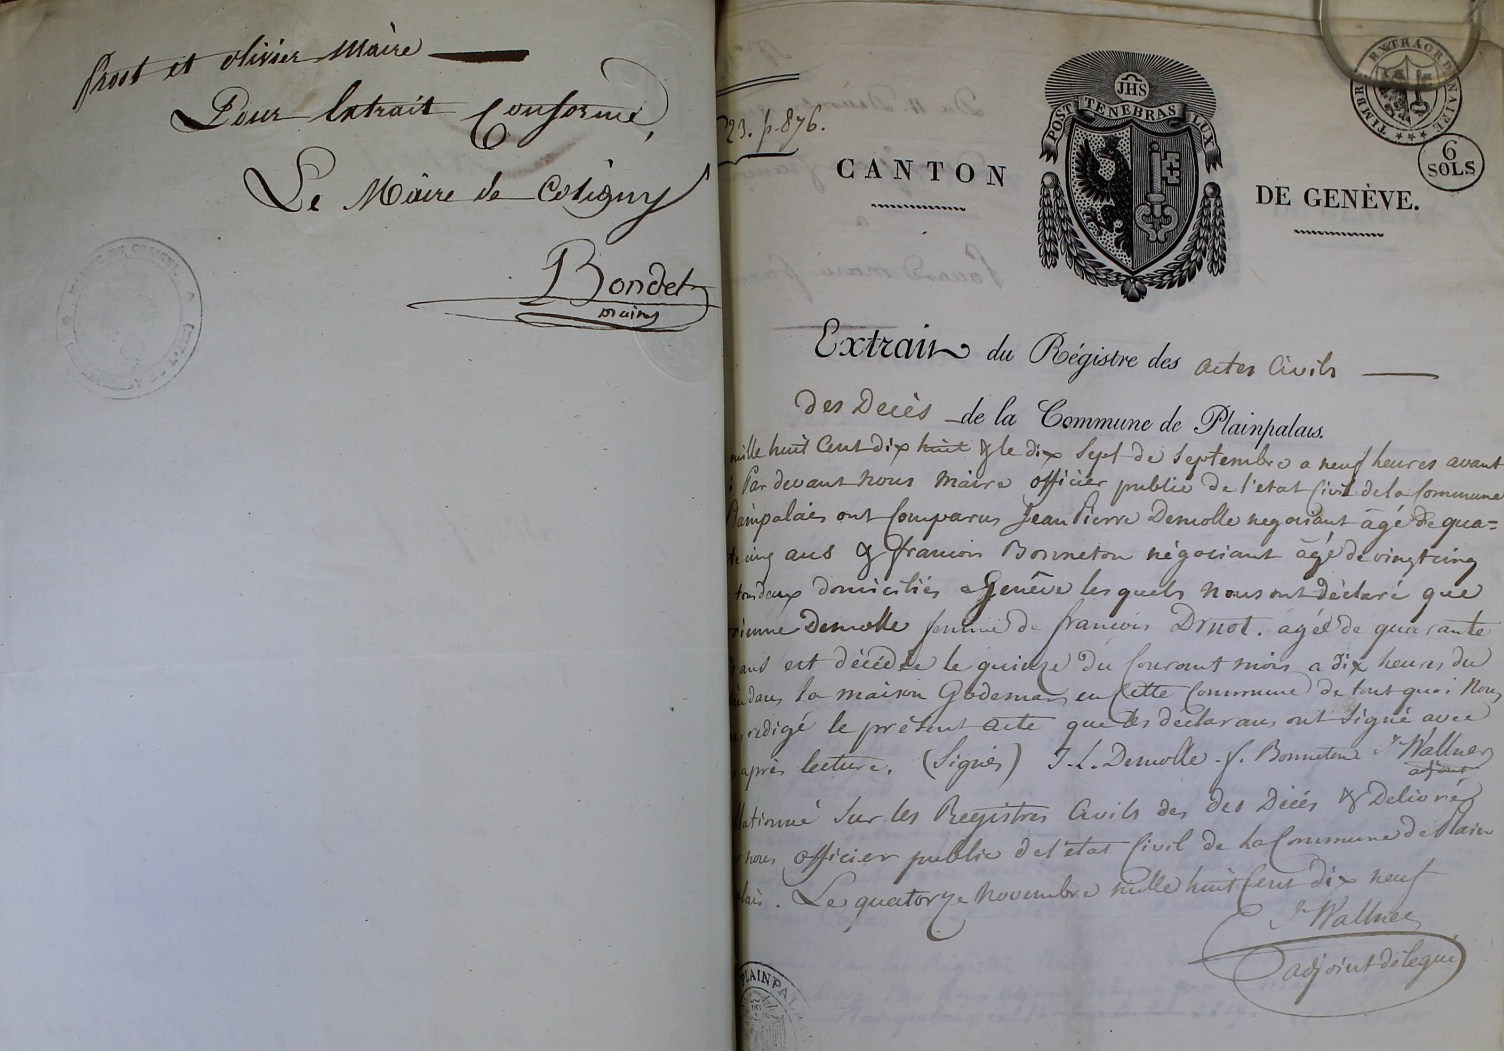 Prost et olivier Maire
Pour Extrait Conforme,
Le Maire de Coligny
Bondet
maire
23. p. 876.
JHS
POST TENEBRAS LUX
TIMBRE EXTRAORDINAIRE
6
SOLS
CANTON DE GENÈVE.
Extrait du Régistre des actes Civils
des Decès de la Commune de Plainpalais.
mille huit Cent dix huit & le dix Sept de Septembre a neuf heures avant
Par devant Nous Maire officier public de l'etat Civil de la Commune
Plainpalais ont Comparus Jean Pierre Demolle negociant âgé de qua=
cinq ans & francois Bonneton négociant âgé de vingt cinq
tous deux domiciliés a Genêve les quels Nous ont déclaré que
Demolle femme de francois Druot. agée de quarante
ans est décédée le quinze du Courant mois a dix heures du
dans la maison Godemar en Cette Commune de tout quoi Nous
redigé le présent acte que les déclarans ont Signé avec
après lecture. (Signés) J. L. Demolle. f. Bonneton Jn Wallner
adjoint
Sur les Registres Civils des des Décés & Delivré
nous officier public de l'état Civil de La Commune de Plain
lais. Le quatorze Novembre mille huit Cent dix neuf
Jn Wallner
adjoint délegué
PLAINPALAIS